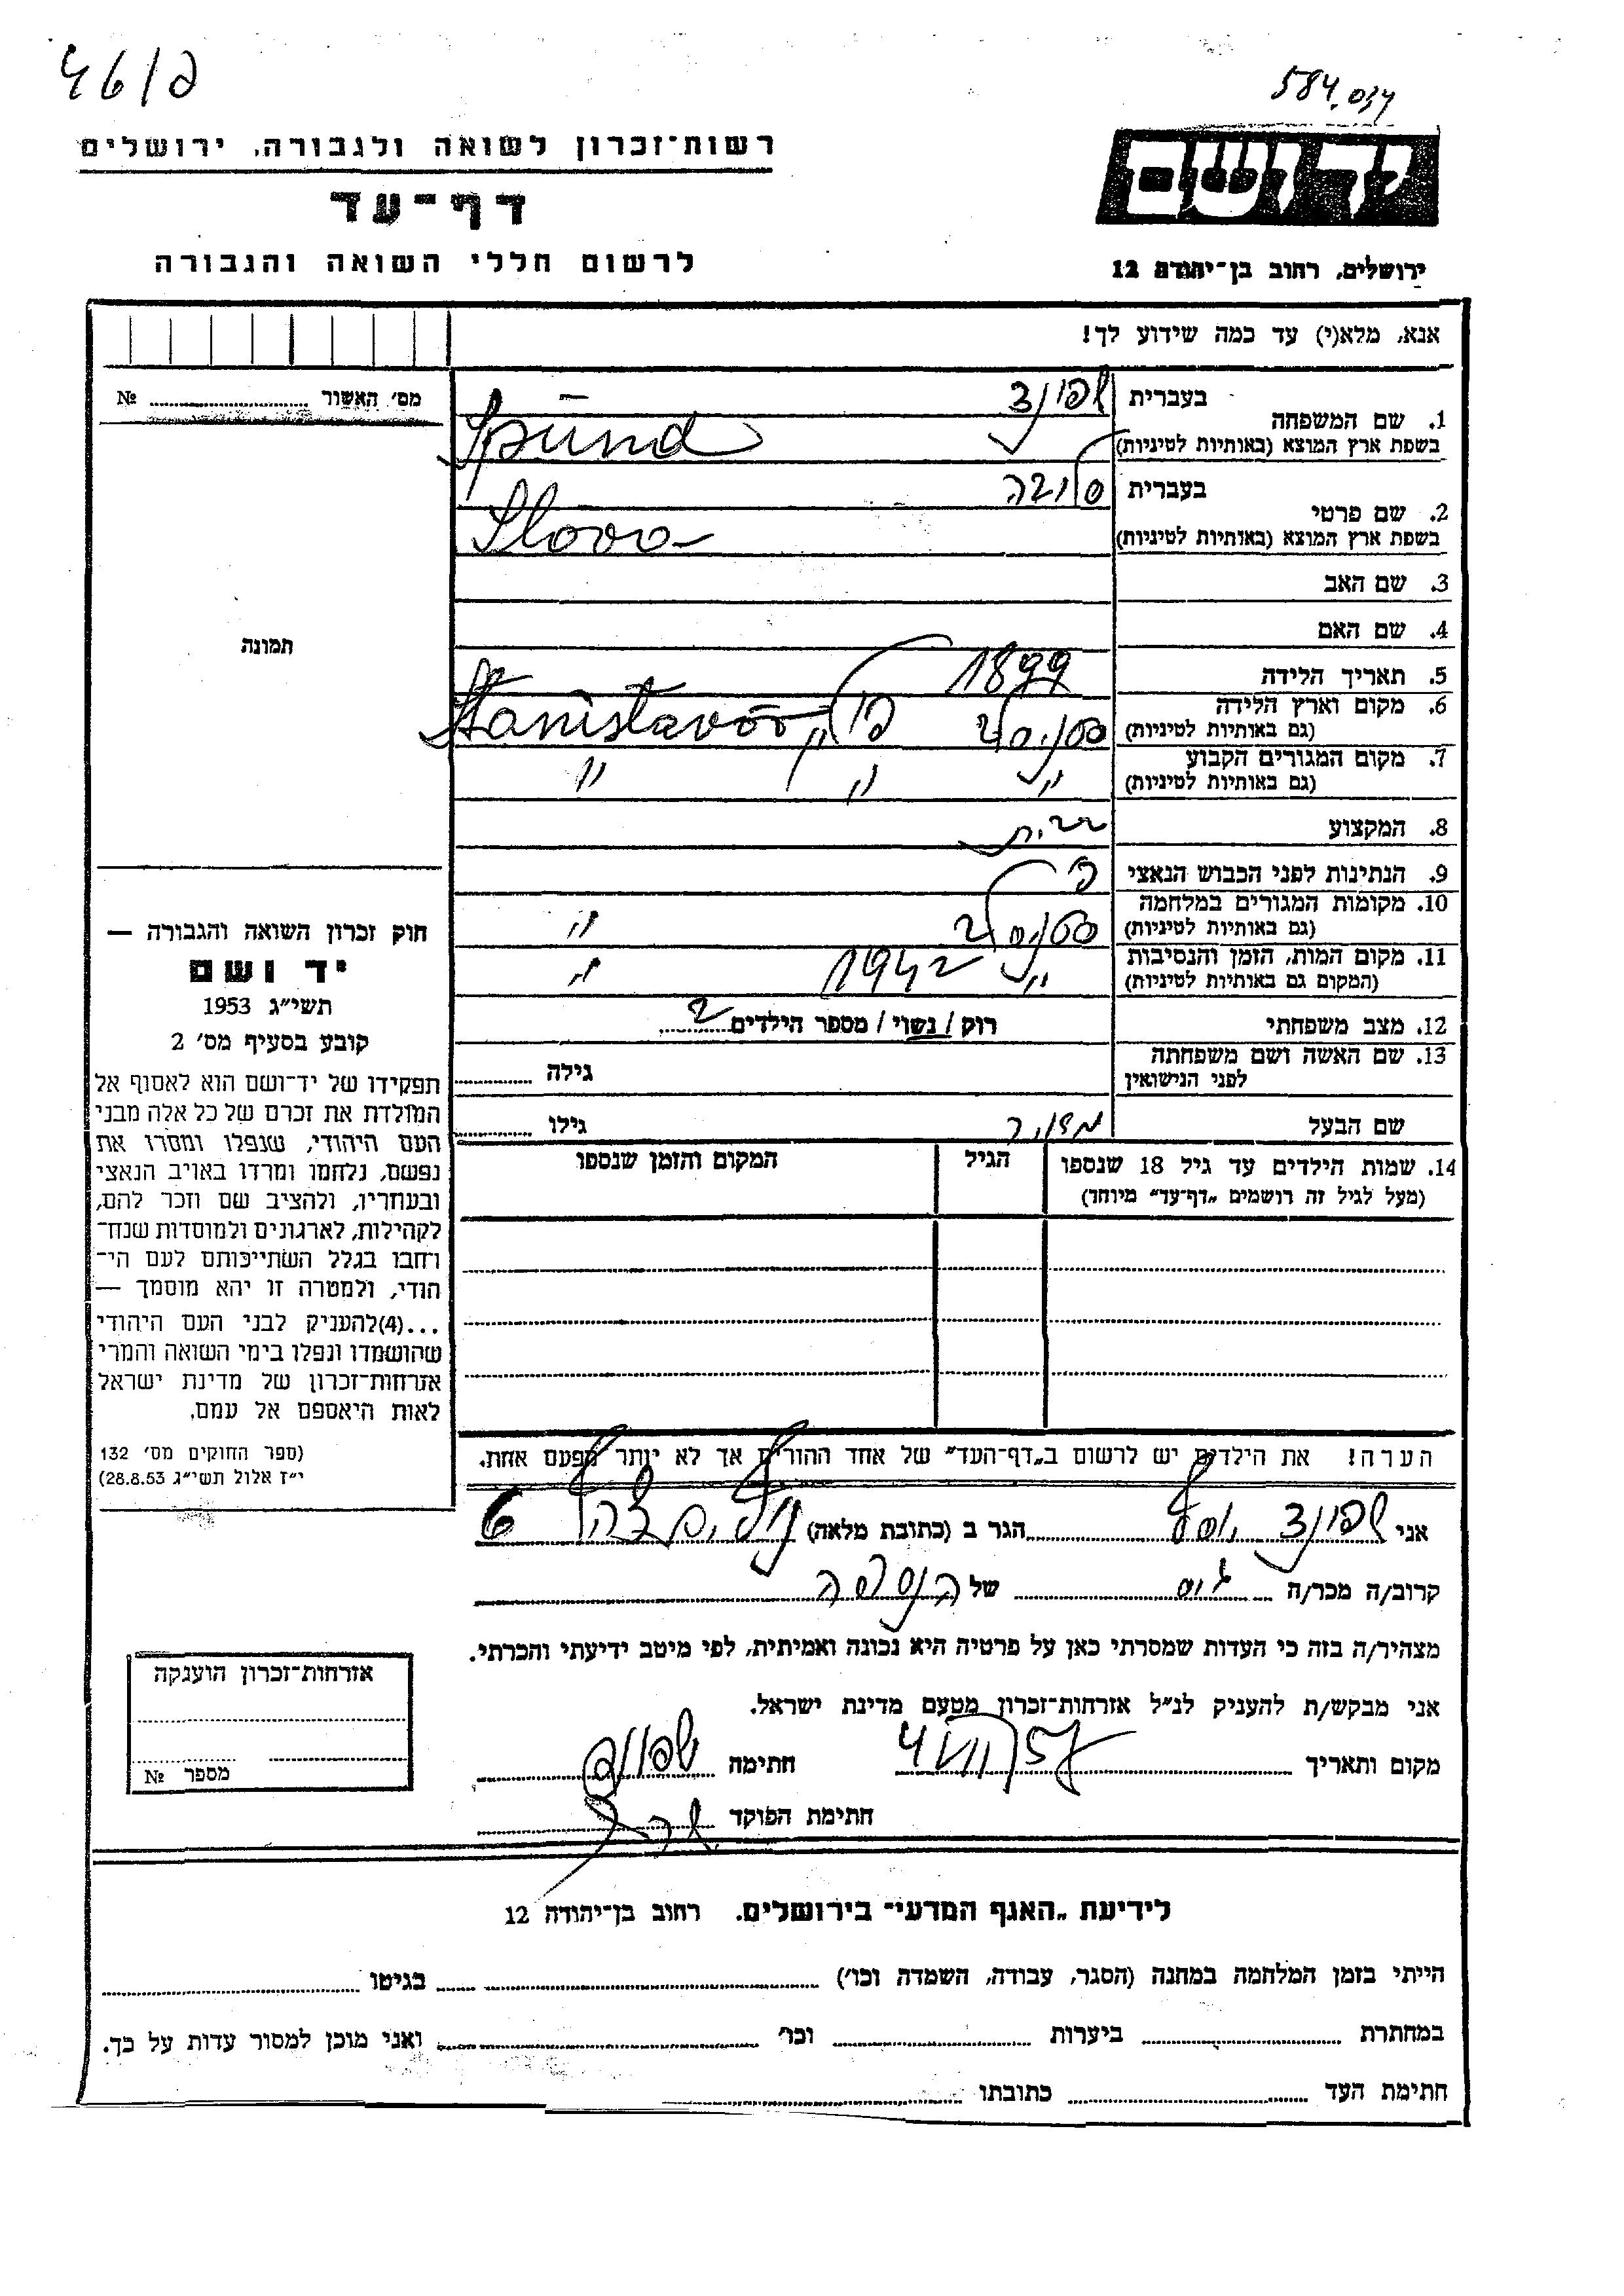 46/פ
584.034
רשות־זכרון לשואה ולגבורה, ירושלים
דף־עד
לרשום חללי השואה והגבורה
יד ושם
ירושלים, רחוב בן־יהודה 12
אנא, מלא(י) עד כמה שידוע לך!
מס׳ האשור № ...
1. שם המשפחה
בעברית שפונד
בשפת ארץ המוצא (באותיות לטיניות) Spund
2. שם פרטי
בעברית סלובה
בשפת ארץ המוצא (באותיות לטיניות) Slova
3. שם האב
4. שם האם
5. תאריך הלידה 1899
6. מקום וארץ הלידה
(גם באותיות לטיניות) פולין Stanislavov
7. מקום המגורים הקבוע
(גם באותיות לטיניות) " " "
8. המקצוע
9. הנתינות לפני הכבוש הנאצי פול
10. מקומות המגורים במלחמה
(גם באותיות לטיניות) "
11. מקום המות, הזמן והנסיבות
(המקום גם באותיות לטיניות) " 1942 "
12. מצב משפחתי רוק / נשוי / מספר הילדים 2
13. שם האשה ושם משפחתה
לפני הנישואין גילה
שם הבעל גילו
14. שמות הילדים עד גיל 18 שנספו
(מעל לגיל זה רושמים „דף־עד" מיוחד)
הגיל
המקום והזמן שנספו
הערה! את הילדים יש לרשום ב„דף־העד" של אחד ההורים אך לא יותר מפעם אחת.
תמונה
חוק זכרון השואה והגבורה —
יד ושם
תשי״ג 1953
קובע בסעיף מס׳ 2
תפקידו של יד־ושם הוא לאסוף אל
המולדת את זכרם של כל אלה מבני
העם היהודי, שנפלו ומסרו את
נפשם, נלחמו ומרדו באויב הנאצי
ובעוזריו, ולהציב שם וזכר להם,
לקהילות, לארגונים ולמוסדות שנח־
רחבו בגלל השתייכותם לעם הי־
הודי, ולמטרה זו יהא מוסמך —
...(4)להעניק לבני העם היהודי
שהושמדו ונפלו בימי השואה והמרי
אזרחות־זכרון של מדינת ישראל
לאות היאספם אל עמם.
(ספר החוקים מס׳ 132
י״ז אלול תשי״ג 28.8.53)
אני שפונד יוסף הגר ב (כתובת מלאה) 6
קרוב/ה מכר/ה גיס של הנספה
מצהיר/ה בזה כי העדות שמסרתי כאן על פרטיה היא נכונה ואמיתית, לפי מיטב ידיעתי והכרתי.
אני מבקש/ת להעניק לנ״ל אזרחות־זכרון מטעם מדינת ישראל.
מקום ותאריך חתימה שפונד
חתימת הפוקד
אזרחות־זכרון הוענקה
מספר №
לידיעת „האגף המדעי־ בירושלים. רחוב בן־יהודה 12
הייתי בזמן המלחמה במחנה (הסגר, עבודה, השמדה וכו׳) בגיטו
במחתרת ביערות וכו׳ ואני מוכן למסור עדות על כך.
חתימת העד כתובתו